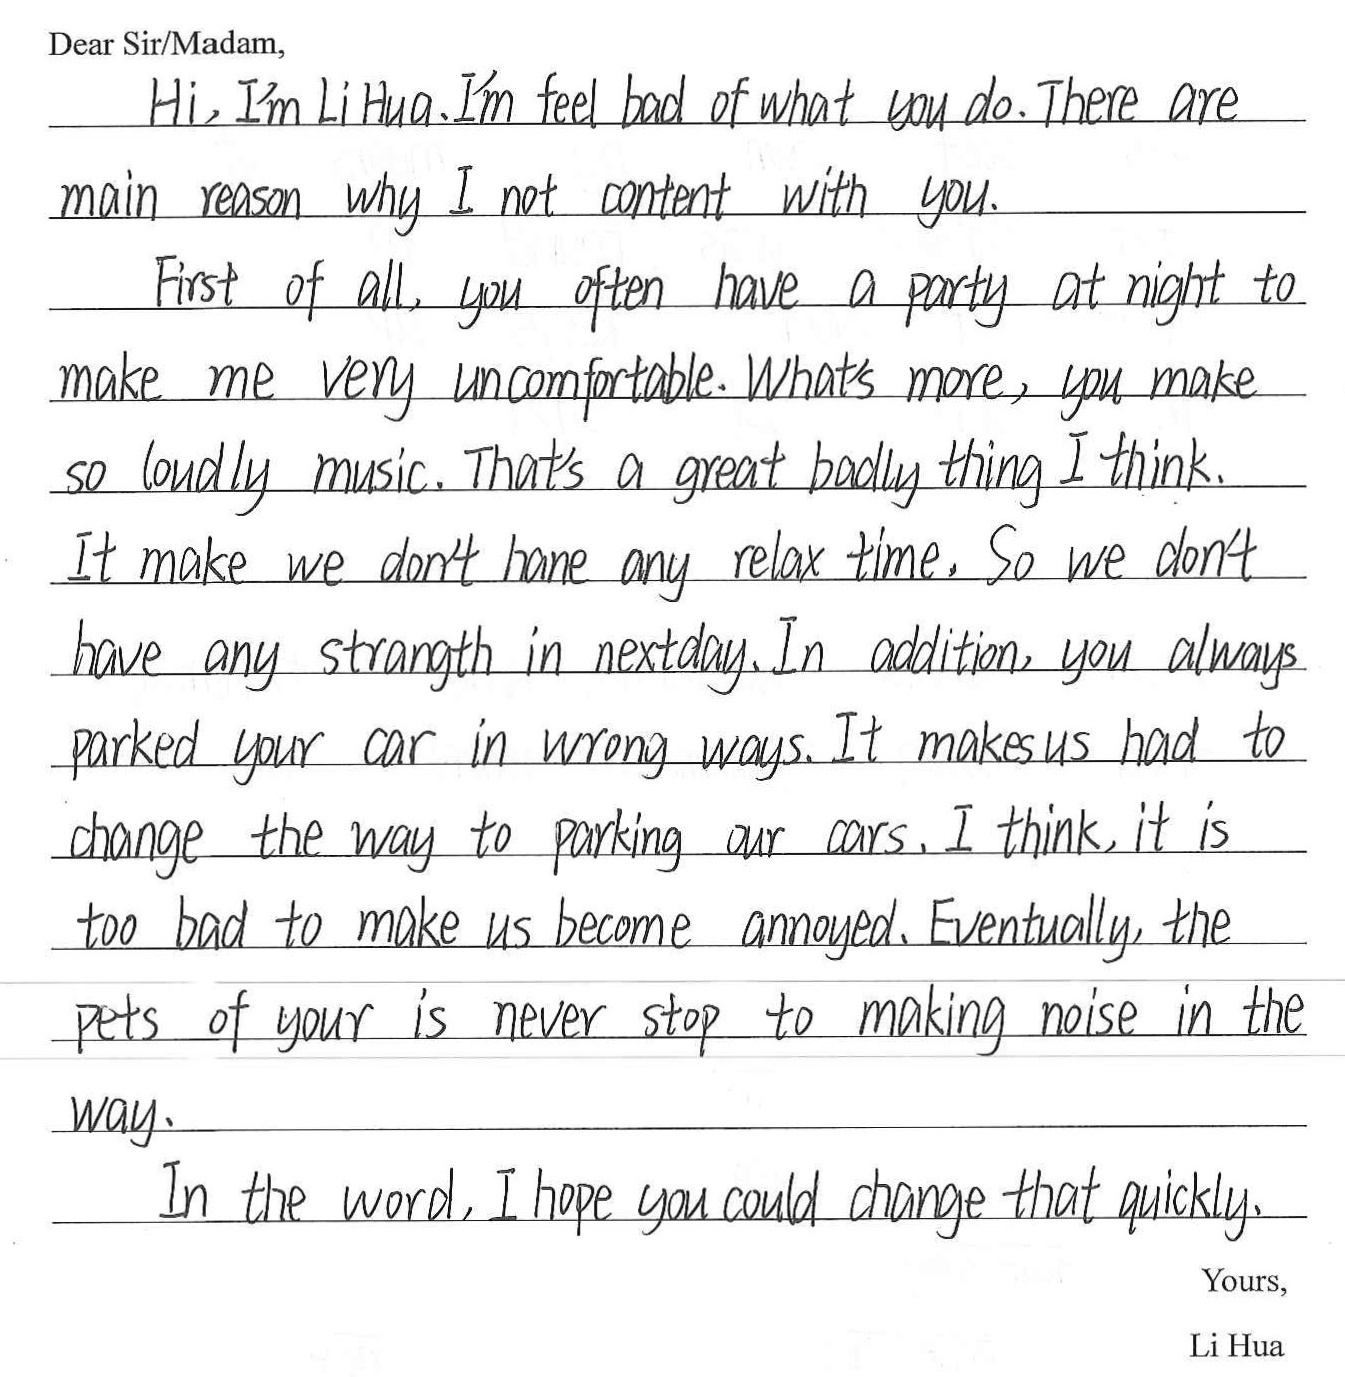 Dear Sir/Madam,
Hi, I'm Li Hua. I'm feel bad of what you do. There are
main reason why I not content with you.
First of all, you often have a party at night to
make me very uncomfortable. What's more, you make
so loudly music. That's a great badly thing I think.
It make we don't hane any relax time. So we don't
have any strangth in nextday. In addition, you always
parked your car in wrong ways. It makes us had to
change the way to parking our cars. I think, it is
too bad to make us become annoyed. Eventually, the
pets of your is never stop to making noise in the
way.
In the word, I hope you could change that quickly.
Yours,
Li Hua